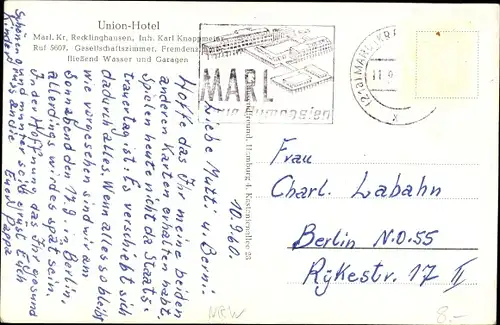 Union-Hotel
Marl. Kr. Recklinghausen, Inh. Karl Knappmeier
Ruf 5607. Gesellschaftszimmer, Fremdenz
fließend Wasser und Garagen
MARL
(21a) MARL (KR
11.9
x
10.9.60.
Liebe Mutti u. Bernі!
Hoffe das Ihr meine beiden
anderen Karten erhalten habt.
Spielen heute nicht da Staats-
trauertag ist: Es verschiebt sich
dadurch alles. Wenn alles so bleibt
wie vorgesehen sind wir am
Sonnabend den 17.9. in Berlin,
allerdings wird es spät sein.
In der Hoffnung das Ihr gesund
und munter seid grüst Euch
Euer Pappa
Schönen Gruss an die
Kinder
Hamburg 4, Kastanienallee 25
Frau
Charl. Labahn
Berlin N.O.55
Rykestr. 17 II
NRW
8.-